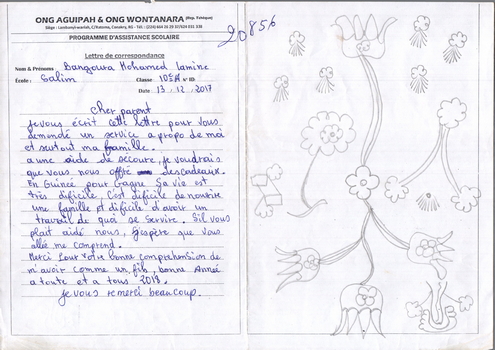 ONG AGUIPAH & ONG WONTANARA (Rep. Tchèque)
PROGRAMME D'ASSISTANCE SCOLAIRE
20856
Lettre de correspondance
Nom & Prénoms Bangoura Mohamed lamine
École : Salim Classe 10è A n° ID
Date 13.12.2017
Cher parent
je vous écrit cette lettre pour vous
demandé un service a propo de moi
et surtout ma famille.
a une aide de secoure, je voudrais
que vous nous offre des cadeaux.
En Guinée pour Gagne sa vie est
très dificile, C'est dificile de nourire
une famille et dificile d'avoir un
travail de quoi se servire. S'il vous
plait aidé nous, j'espère que vous
allée me comprend.
Merci pour votre bonne comprehension de
m'avoir comme un fils, bonne Année
a toute et a tous 2018.
je vous remerci beaucoup.